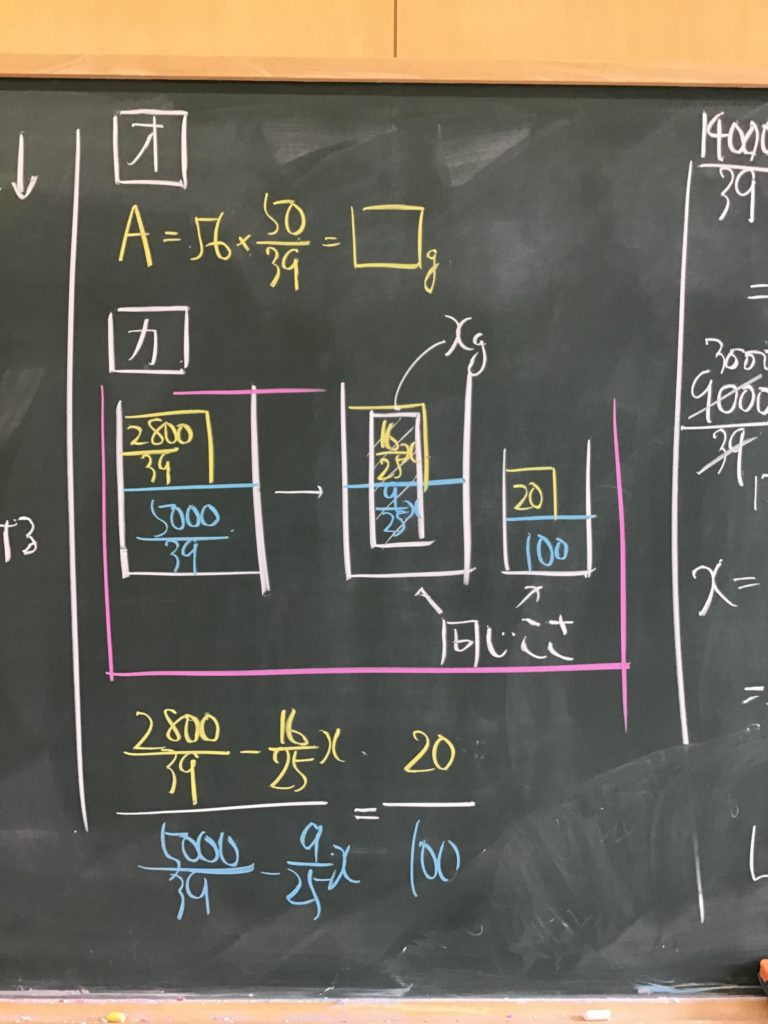 ↓
オ
A = 56 × 50/39 = □ g
カ
xg
2800/39
5000/39
→
16/25 x
9/25 x
20
100
同じこさ
(2800/39 − 16/25 x) / (5000/39 − 9/25 x) = 20/100
14000/39
=
3000
9000/39
x =
=